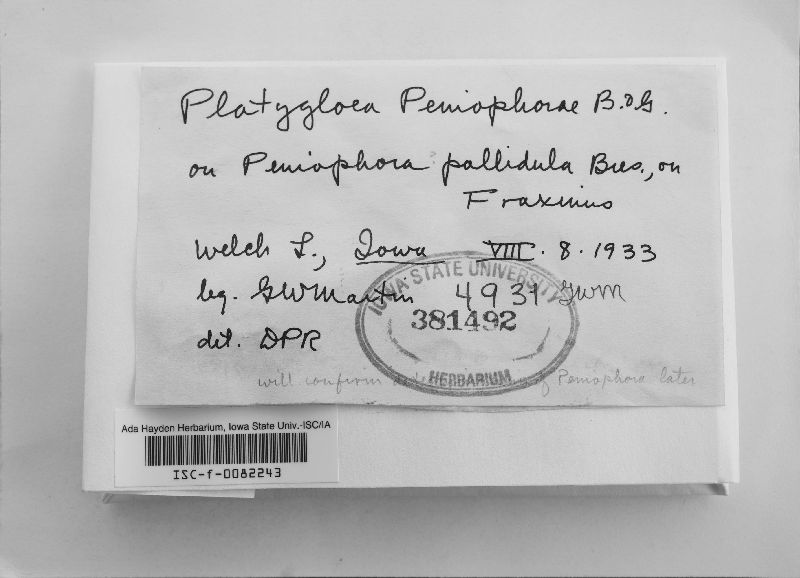 Platygloea Peniophorae B. & G.
on Peniophora pallidula Bres., on
Fraxinus
Welch L., Iowa VIII. 8. 1933
leg. GWMartin 4931 GWM
det. DPR
IOWA STATE UNIVERSITY
381492
HERBARIUM
will confirm of Peniophora later
Ada Hayden Herbarium, Iowa State Univ.-ISC/IA
ISC-f-0082243